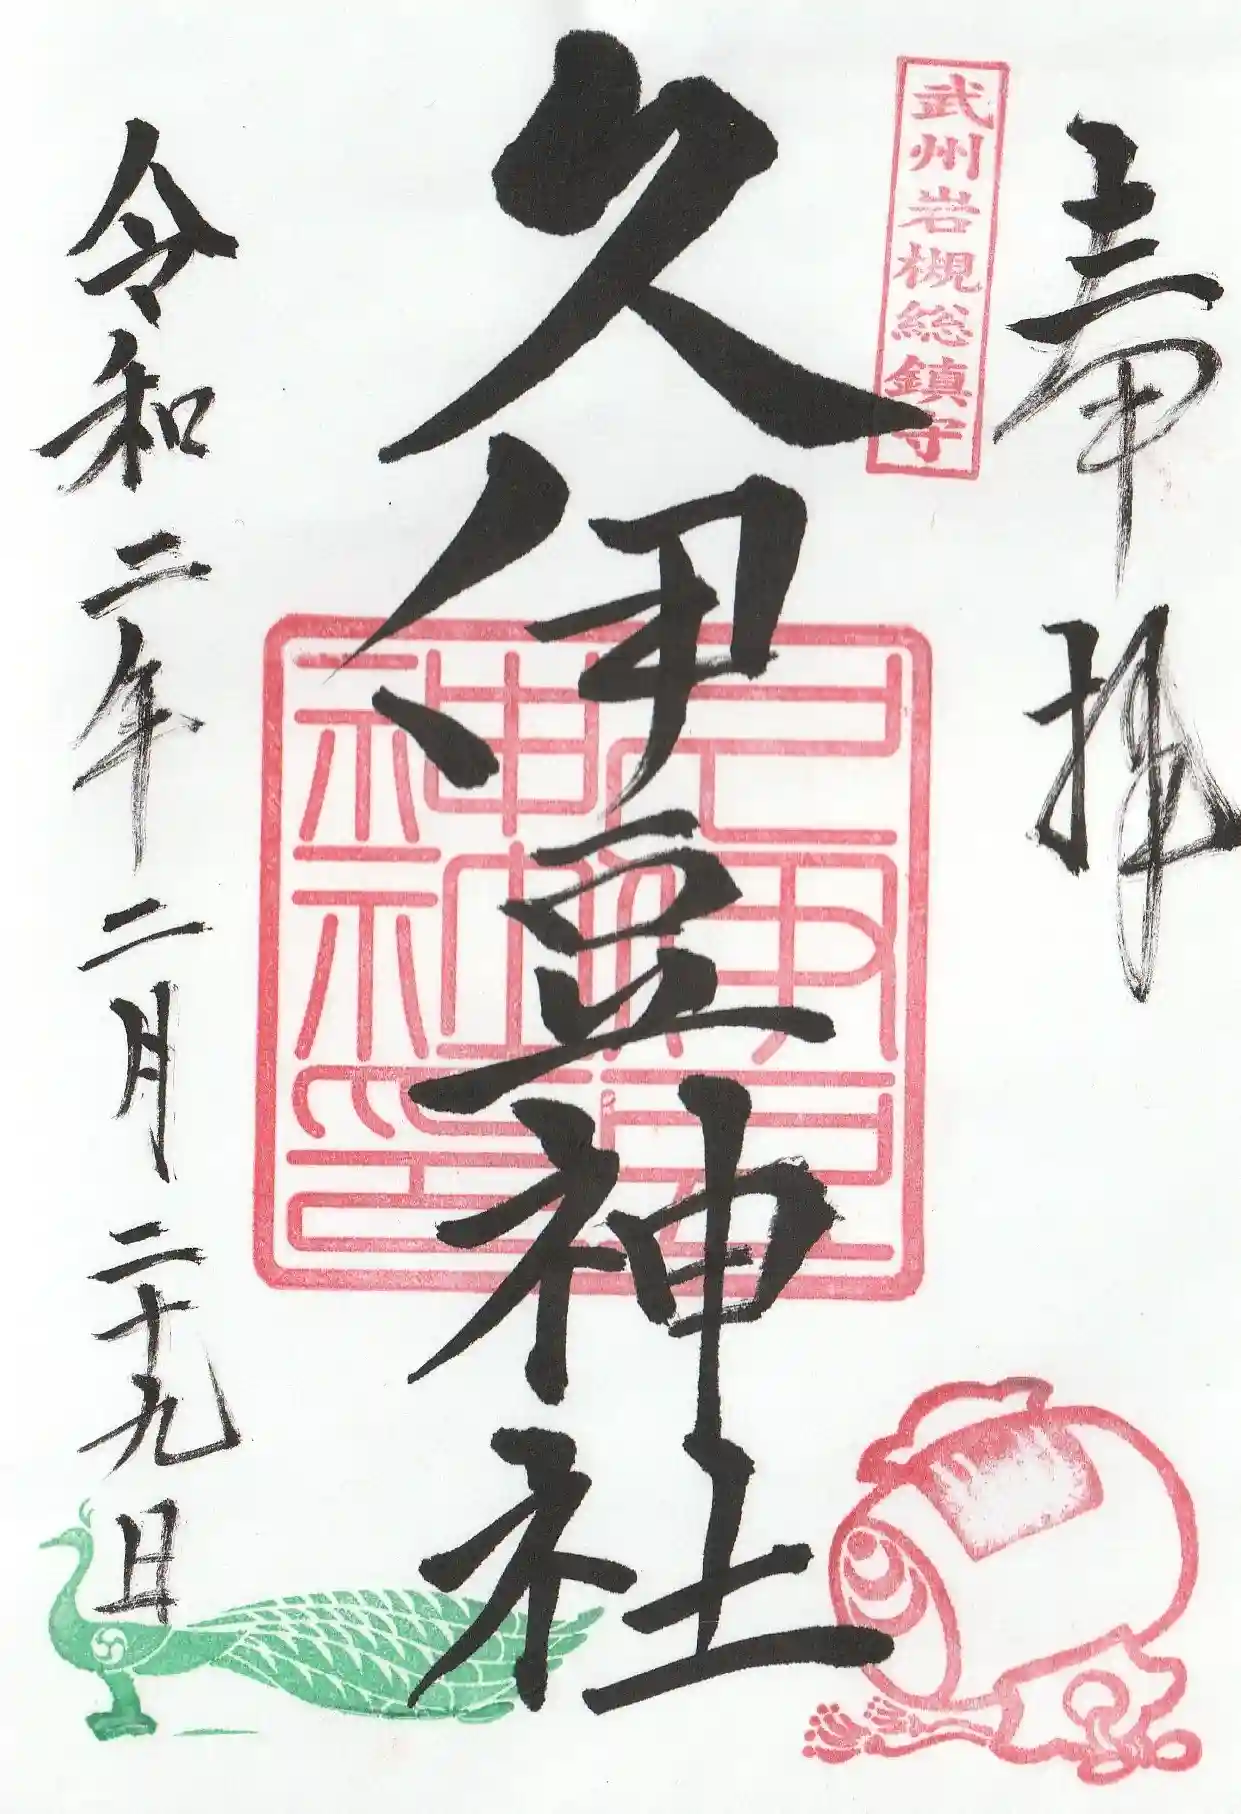 奉拝
武州岩槻総鎮守
久伊豆神社
久伊豆神社印
令和二年二月二十九日